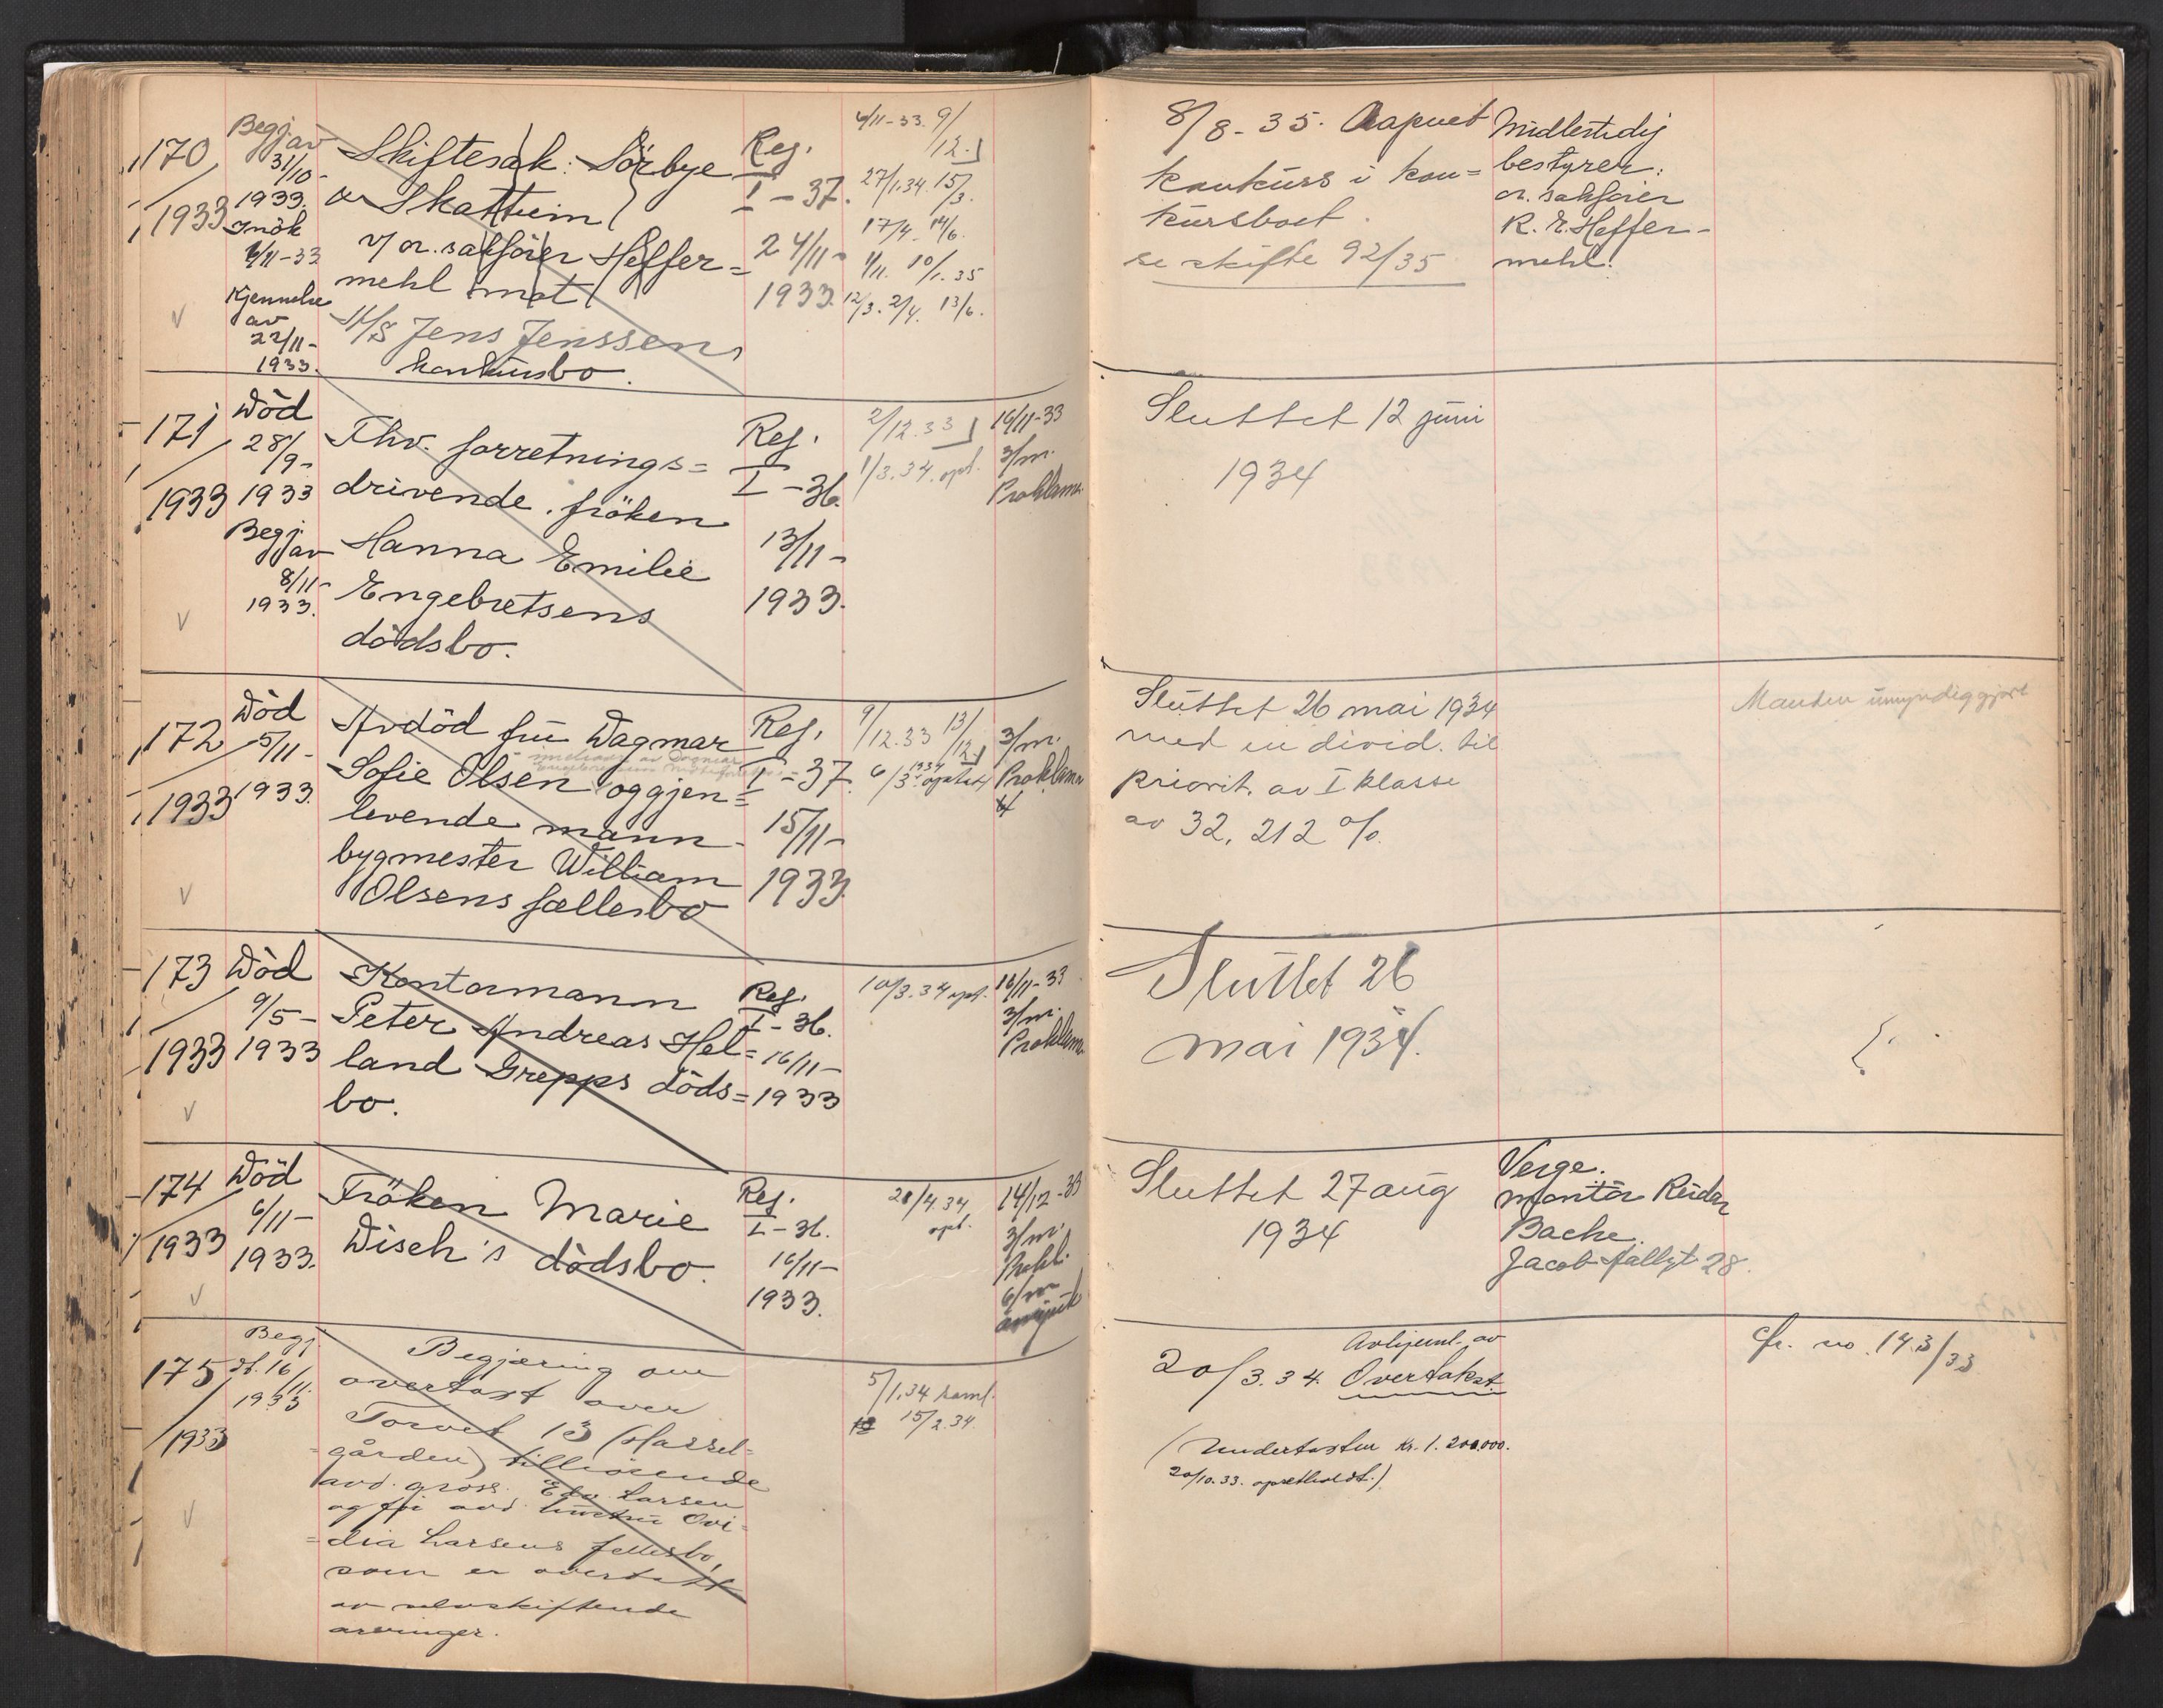 170
1933
Begj. av
31/10-
1933.
Inök
6/11-33
Kjennelse
av
22/11-
1933.
Skiftesak: Sörbye
& Skattum
v/ or. sakförer Heffer=
mehl mot
A/S Jens Jenssens
konkursbo.
Reg.
I - 37.
24/11-
1933.
4/11-33. 9/12.
27/1.34. 15/3.
17/4. 14/6.
1/11. 10/1.35
12/3. 2/4. 13/6.
8/8-35. Aapnet
konkurs i kon=
kursboet.
se skifte 92/35
Midlertidig
bestyrer:
or. sakförer
R. E. Heffer-
mehl.
171
1933
Död
28/9-
1933
Begj. av
8/11-
1933.
Fhv. forretnings=
drivende fröken
Hanna Emilie
Engebretsens
dödsbo.
Reg.
I - 36.
13/11-
1933.
2/12.33
1/3.34. opt.
16/11-33
3/m.
Proklama
Sluttet 12 juni
1934
172
1933
Död
5/11-
1933.
Avdöd fru Dagmar
Sofie Olsen og gjen=
levende mann
bygmester William
Olsens fællesbo
Reg.
I - 37.
15/11-
1933.
9/12.33 13/12.
6/3 1934 opsatt
3/m.
Proklama
Sluttet 26 mai 1934
med en divid. til
priorit. av I klasse
av 32,212 %.
Manden umyndiggjort
173
1933
Död
9/5-
1933
Kontormann
Peter Andreas Hel=
land Grepps döds=
bo.
Reg.
I - 36.
16/11-
1933
10/3.34 opt.
16/11-33
3/m.
Proklama
Sluttet 26
mai 1934.
174
1933
Död
6/11-
1933.
Fröken Marie
Disch's dödsbo.
Reg.
I - 36.
16/11-
1933.
20/4.34
opt.
14/12-33
3/m.
Prokl.
6/m
Sluttet 27 aug
1934
Verge:
montör Reidar
Bache.
Jacob Aallsgt 28.
175
1933
Begj.
dt. 16/11.
1933
Begjæring om
overtaxt over
Torvet 13 (Hassel-
gården) tilhörende
avd. gross. Edv. Larsen
og før avd. hustru Ovi-
dia Larsens fellesbo,
som er overtatt
av selvskiftende
arvinger.
5/1.34 saml.
15/2.34.
20/3.34. Avhjeml. av
Overtakst.
(Undertaxten kr. 1.200.000.
20/10.33. opretholdt.)
cfr. no. 143/33